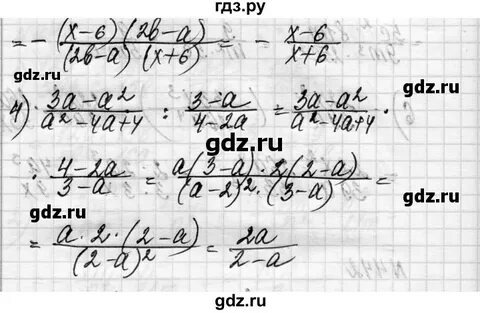 гдз.ру
= - (x-6)(2b-a) / (2b-a)(x+6) = - x-6 / x+6
gdz.ru gdz.ru
4) · 3a-a² / a²-4a+4 : 3-a / 4-2a = 3a-a² / a²-4a+4 ·
gdz.ru
· 4-2a / 3-a = a(3-a)·2(2-a) / (a-2)²·(3-a) =
gdz.ru
gdz.ru
= a·2·(2-a) / (2-a)² = 2a / 2-a
gdz.ru gdz.ru
gdz.ru